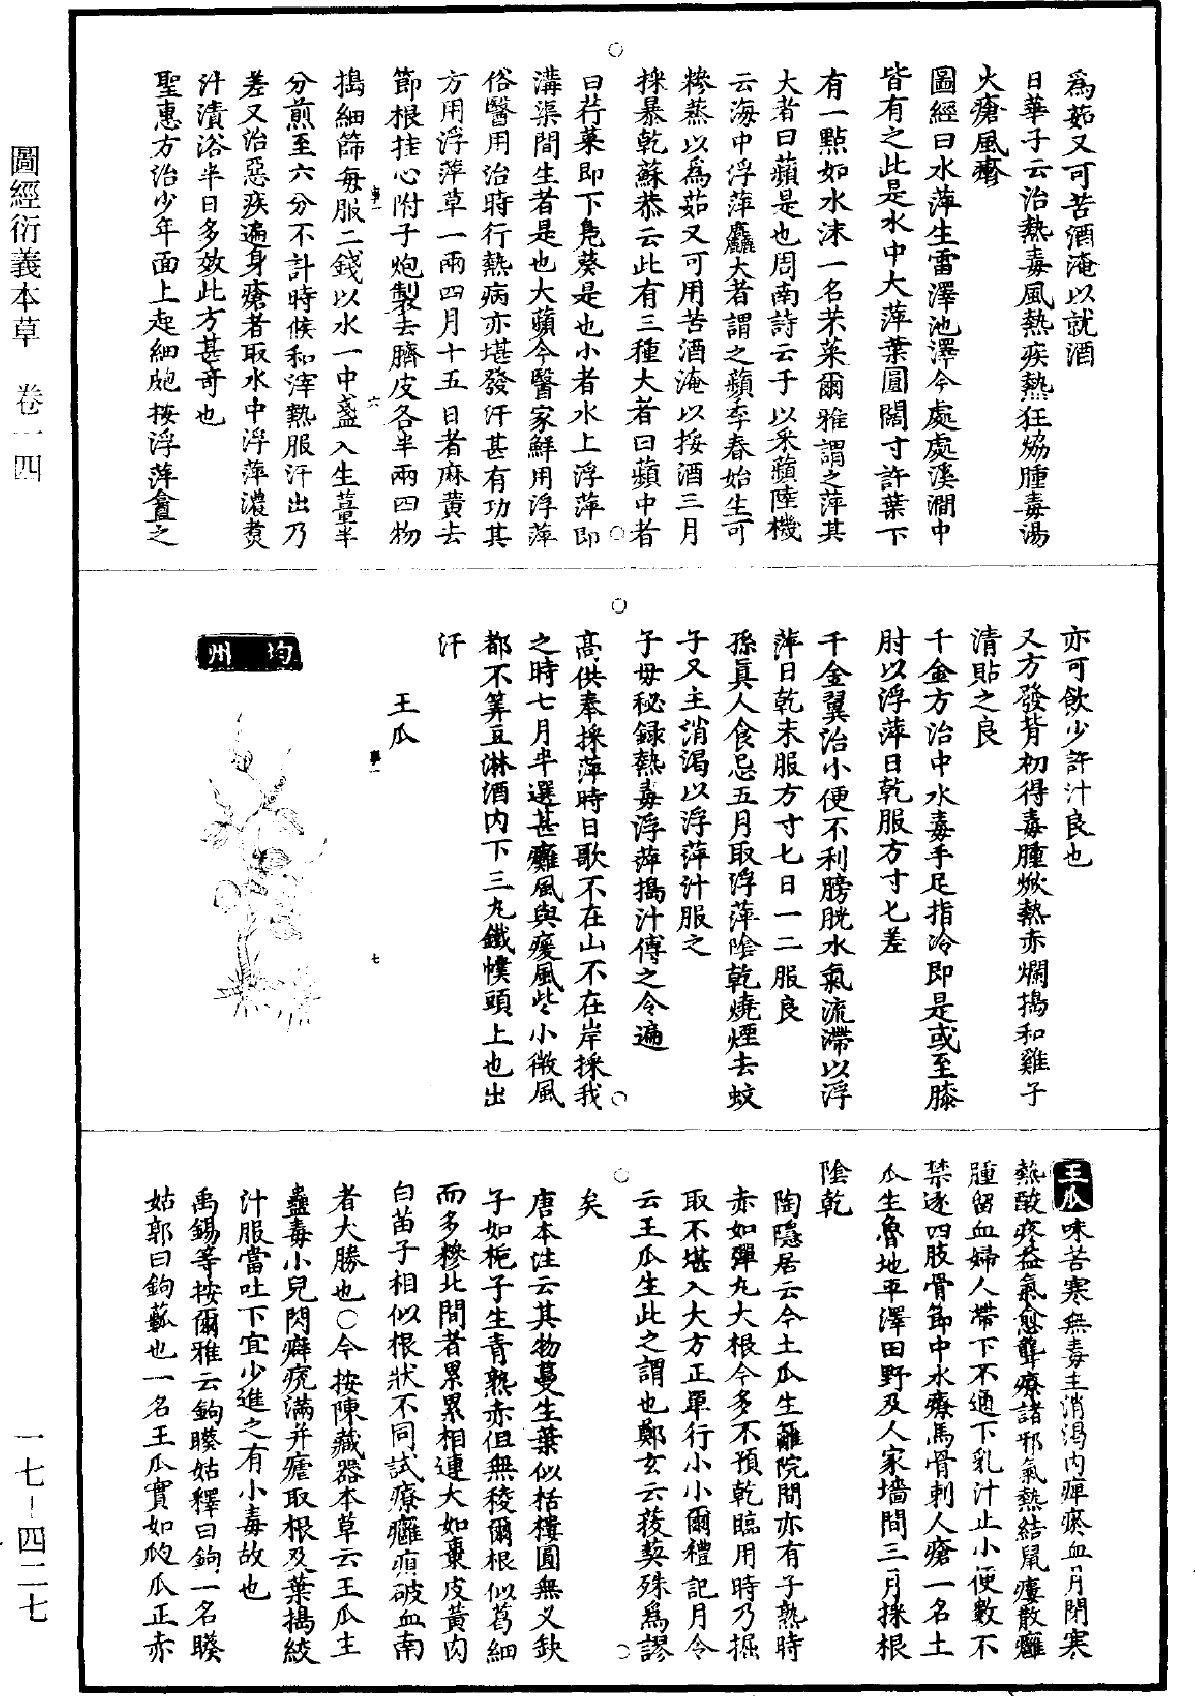 圖經衍義本草　卷一四
一七－四二七
爲茹又可苦酒淹以就酒
日華子云治熱毒風熱疾熱狂㷔腫毒湯
火瘡風𤺋
圖經曰水萍生雷澤池澤今處處溪澗中
皆有之此是水中大萍葉圓闊寸許葉下
有一點如水沫一名芣菜爾雅謂之萍其
大者曰蘋是也周南詩云于以采蘋陸機
云海中浮萍麤大者謂之蘋季春始生可
糝蒸以爲茹又可用苦酒淹以按酒三月
採暴乾蘇恭云此有三種大者曰蘋中者
曰荇菜即下鳧葵是也小者水上浮萍即
溝渠間生者是也大蘋今醫家鮮用浮萍
俗醫用治時行熱病亦堪發汗甚有功其
方用浮萍草一兩四月十五日者麻黃去
節根挂心附子炮製去臍皮各半兩四物
擣細篩每服二錢以水一中盞入生薑半
分煎至六分不計時候和滓熱服汗出乃
差又治惡疾遍身瘡者取水中浮萍濃煑
汁漬浴半日多效此方甚奇也
聖惠方治少年面上起細皰按浮萍盦之
亦可飲少許汁良也
又方發背初得毒腫焮熱赤爛擣和雞子
清貼之良
千金方治中水毒手足指冷即是或至膝
肘以浮萍日乾服方寸匕差
千金翼治小便不利膀胱水氣流滯以浮
萍日乾末服方寸七日一二服良
孫眞人食忌五月取浮萍陰乾燒煙去蚊
子又主消渴以浮萍汁服之
子母秘録熱毒浮萍擣汁傅之令遍
高供奉採萍時日歌不在山不在岸採我
之時七月半選甚癱風與瘓風些小微風
都不筭豆淋酒內下三丸鐵幞頭上也出
汗
王瓜
均州
王瓜味苦寒無毒主消渴內痺瘀血月閉寒
熱酸疼益氣愈聾療諸邪氣熱結鼠瘻散癰
腫留血婦人帶下不通下乳汁止小便數不
禁逐四肢骨節中水療馬骨刺人瘡一名土
瓜生魯地平澤田野及人家墻間三月採根
陰乾
陶隱居云今土瓜生籬院間亦有子熟時
赤如彈丸大根今多不預乾臨用時乃掘
取不堪入大方正單行小小爾禮記月令
云王瓜生此之謂也鄭玄云菝葜殊爲謬
矣
唐本注云其物蔓生葉似栝樓圓無义缺
子如梔子生青熟赤但無稜爾根似葛細
而多糝北間者累累相連大如棗皮黃肉
白苗子相似根狀不同試療癰疽破血南
者大勝也○今按陳藏器本草云王瓜主
蠱毒小兒閃癖痞滿并瘧取根及葉擣絞
汁服當吐下宜少進之有小毒故也
禹錫等按爾雅云鉤䕭姑釋曰鉤一名䕭
姑郭曰鉤㼎也一名王瓜實如瓝瓜正赤